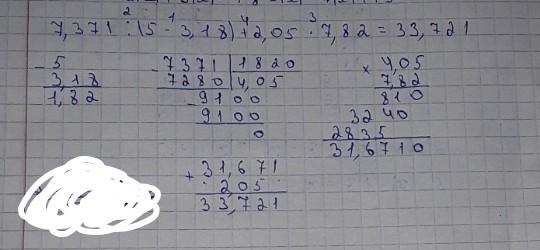 7,371 : (5 - 3,18) + 2,05 · 7,82 = 33,721
2 1 4 3
- 5
3,18
1,82
- 7371 | 1820
7280 | 4,05
- 9100
9100
0
× 4,05
7,82
810
3240
2835
31,6710
+ 31,671
2,05
33,721